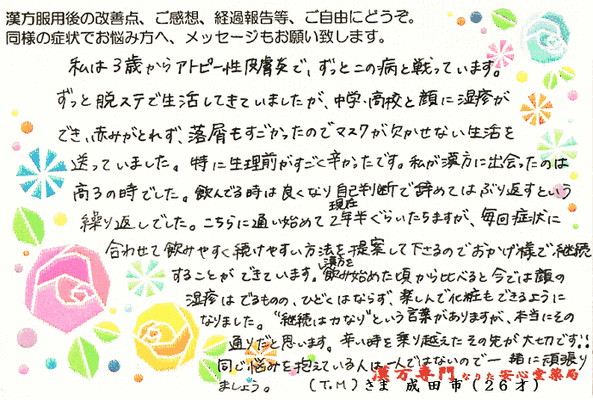 漢方服用後の改善点、ご感想、経過報告等、ご自由にどうぞ。
同様の症状でお悩み方へ、メッセージもお願い致します。
私は3歳からアトピー性皮膚炎で、ずっとこの病と戦っています。
ずっと脱ステで生活してきていましたが、中学・高校と顔に湿疹が
でき、赤みがとれず、落屑もすごかったのでマスクが欠かせない生活を
送っていました。特に生理前がすごく辛かったです。私が漢方に出会ったのは
高3の時でした。飲んでる時は良くなり自己判断で辞めてはぶり返すという
繰り返しでした。こちらに通い始めて現在2年半ぐらいたちますが、毎回症状に
合わせて飲みやすく続けやすい方法を提案して下さるのでおかげ様で継続
することができています。漢方を飲み始めた頃から比べると今では顔の
湿疹はでるものの、ひどくはならず、楽しんで化粧もできるように
なりました。"継続は力なり"という言葉がありますが、本当にその
通りだと思います。辛い時を乗り越えたその先が大切です!!
同じ悩みを抱えている人は一人ではないので一緒に頑張り
ましょう。
漢方専門なりた安心堂薬局
(T.M)さま 成田市(26才)